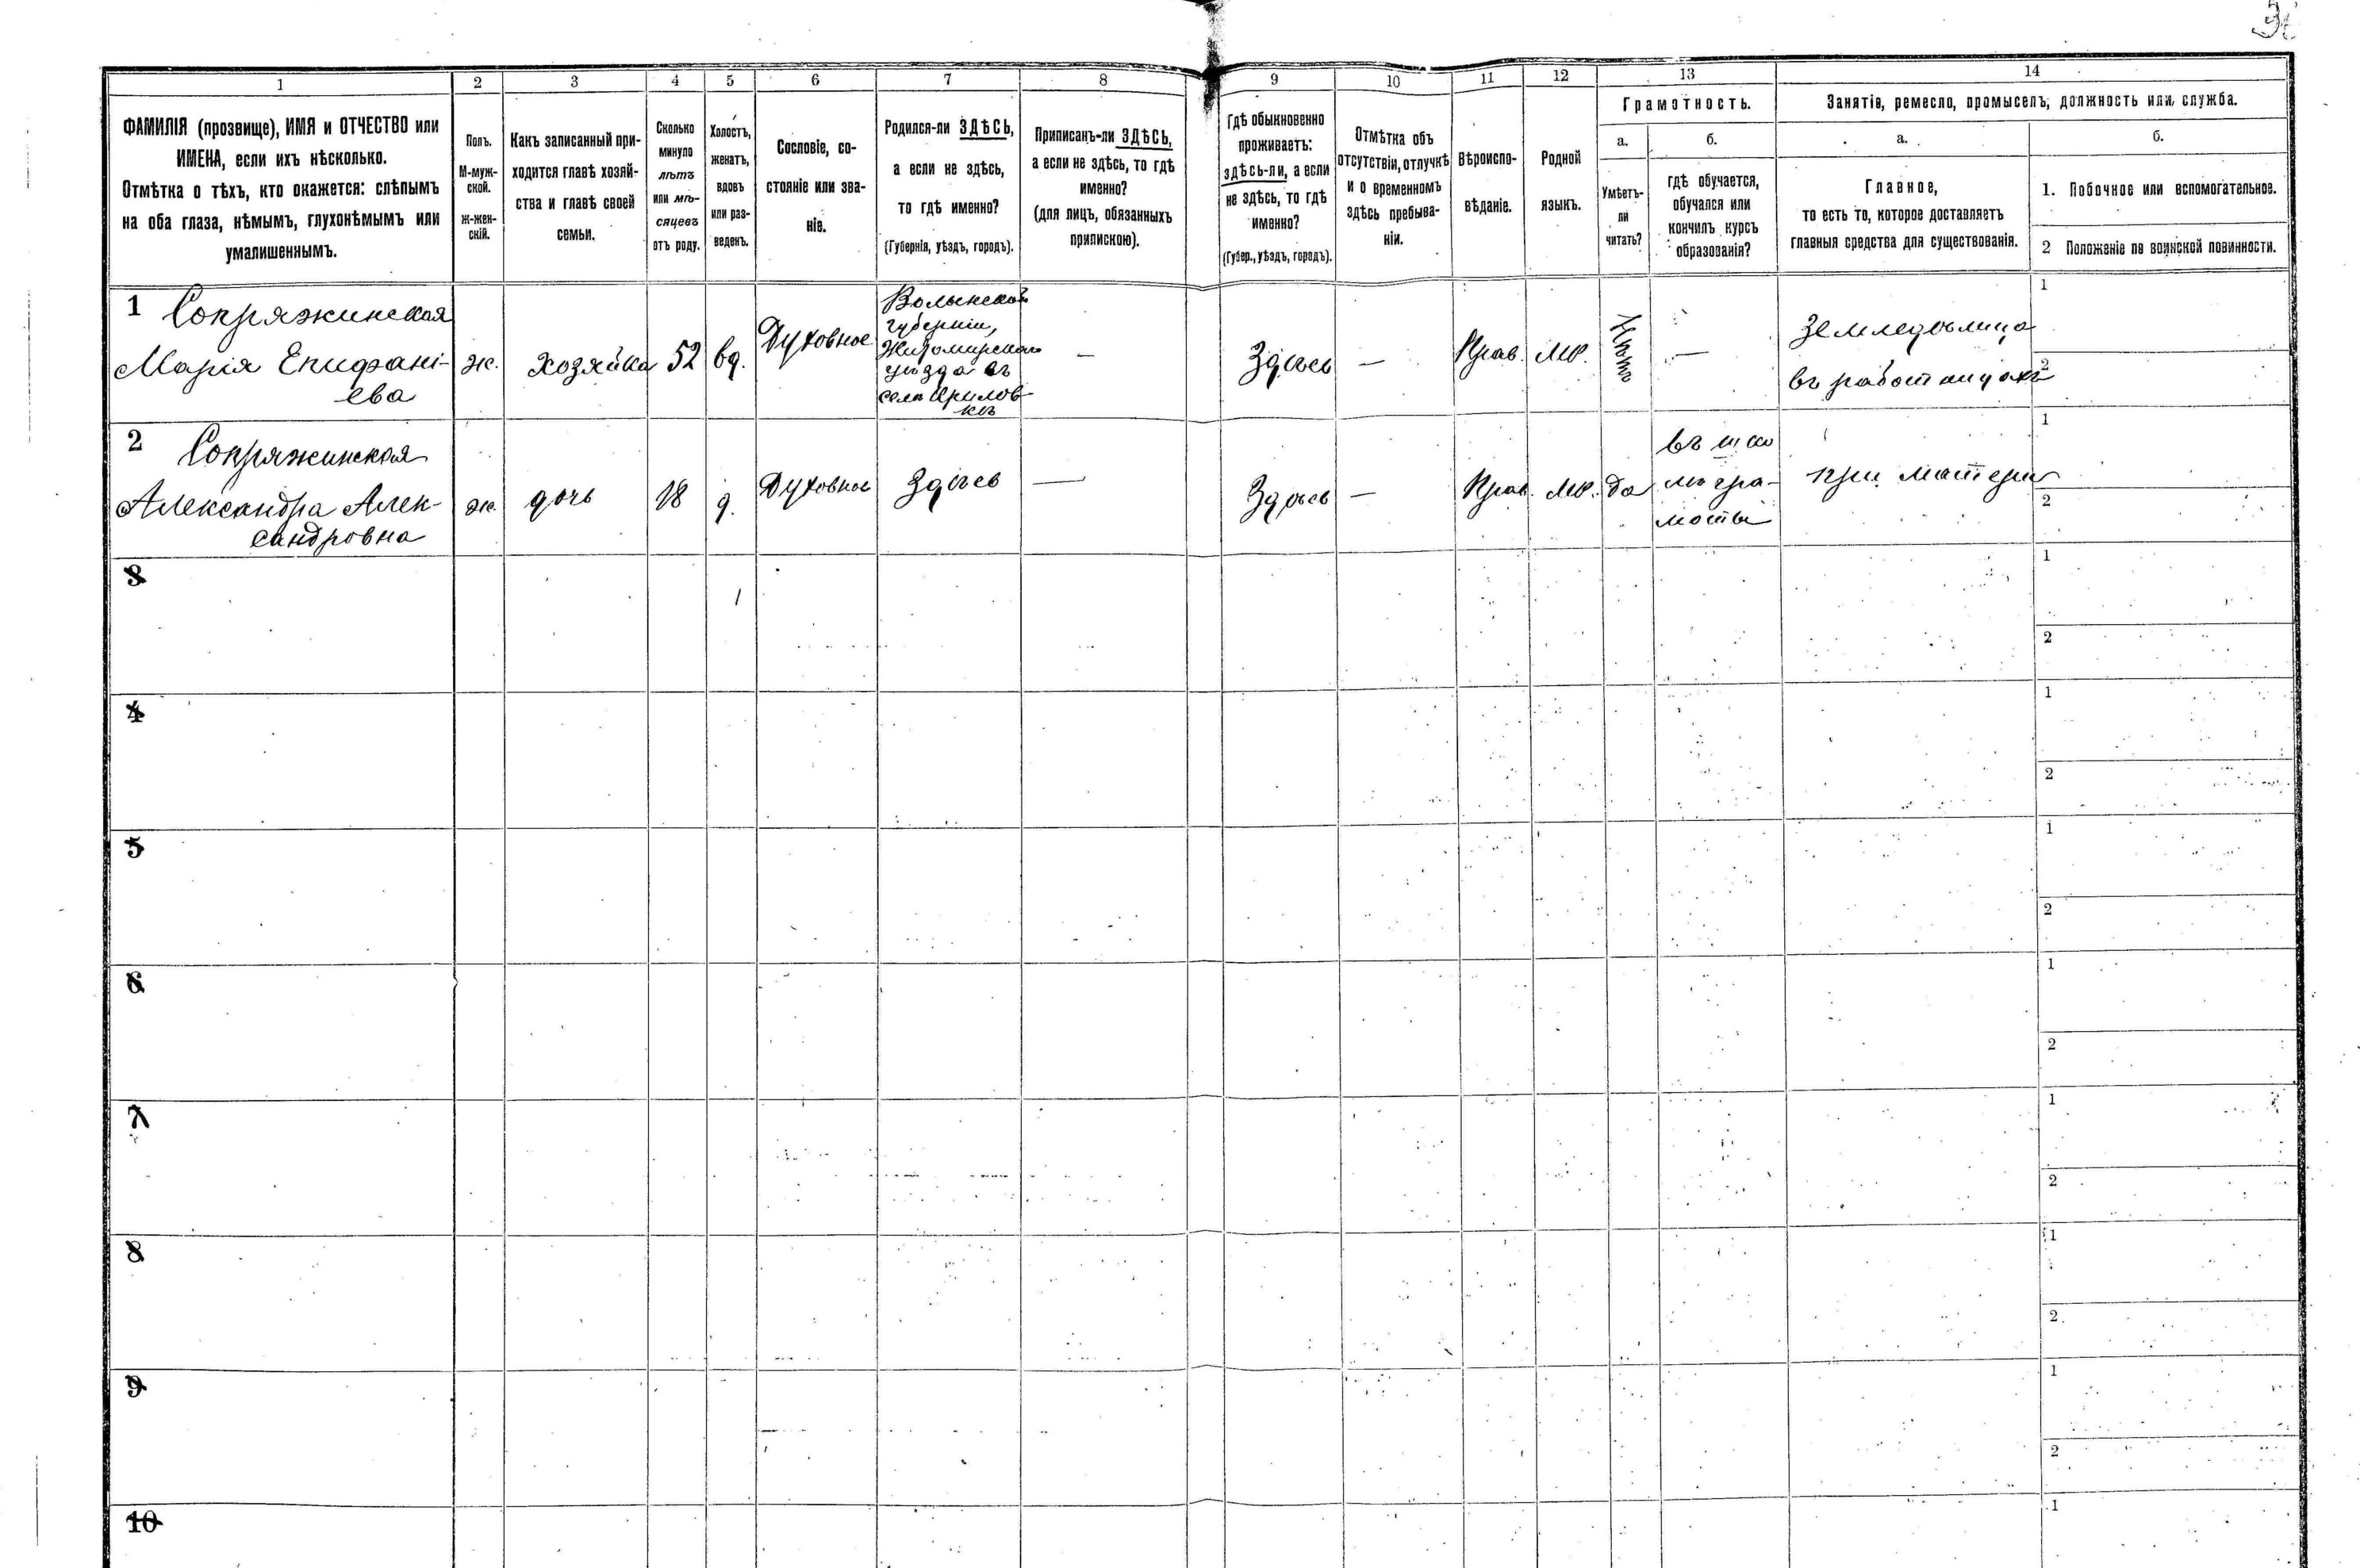 1
2
3
4
5
6
7
8
9
10
11
12
13
14
ФАМИЛІЯ (прозвище), ИМЯ и ОТЧЕСТВО или
ИМЕНА, если ихъ нѣсколько.
Отмѣтка о тѣхъ, кто окажется: слѣпымъ
на оба глаза, нѣмымъ, глухонѣмымъ или
умалишеннымъ.
Полъ.
М-муж-
ской.
ж-жен-
скій.
Какъ записанный при-
ходится главѣ хозяй-
ства и главѣ своей
семьи.
Сколько
минуло
лѣтъ
или мѣ-
сяцевъ
отъ роду.
Холостъ,
женатъ,
вдовъ
или раз-
веденъ.
Сословіе, со-
стояніе или зва-
ніе.
Родился-ли ЗДѢСЬ,
а если не здѣсь,
то гдѣ именно?
(Губернія, уѣздъ, городъ).
Приписанъ-ли ЗДѢСЬ,
а если не здѣсь, то гдѣ
именно?
(для лицъ, обязанныхъ
припискою).
Гдѣ обыкновенно
проживаетъ:
здѣсь-ли, а если
не здѣсь, то гдѣ
именно?
(Губер., уѣздъ, городъ).
Отмѣтка объ
отсутствіи, отлучкѣ
и о временномъ
здѣсь пребыва-
ніи.
Вѣроиспо-
вѣданіе.
Родной
языкъ.
Грамотность.
а.
Умѣетъ-
ли
читать?
б.
гдѣ обучается,
обучался или
кончилъ курсъ
образованія?
Занятіе, ремесло, промыселъ, должность или служба.
а.
Главное,
то есть то, которое доставляетъ
главныя средства для существованія.
б.
1. Побочное или вспомогательное.
2 Положеніе по воинской повинности.
1 Сопряжинская
Марія Епифані-
ева
ж.
хозяйка
52
вд.
Духовное
Волынской
губерніи,
Житомирскаго
уѣзда въ
—
Здѣсь
—
Прав.
мр.
Нѣтъ
—
Земледѣлица
въ работницахъ
1
2
2 Сопряжинская
Александра Алек-
сандровна
ж.
дочь
18
д.
Духовное
Здѣсь
—
Здѣсь
—
Прав.
мр.
да
въ шко
лѣ гра-
моты
при матери
1
2
3
1
2
4
1
2
5
1
2
6
1
2
7
1
2
8
1
2
9
1
2
10
1